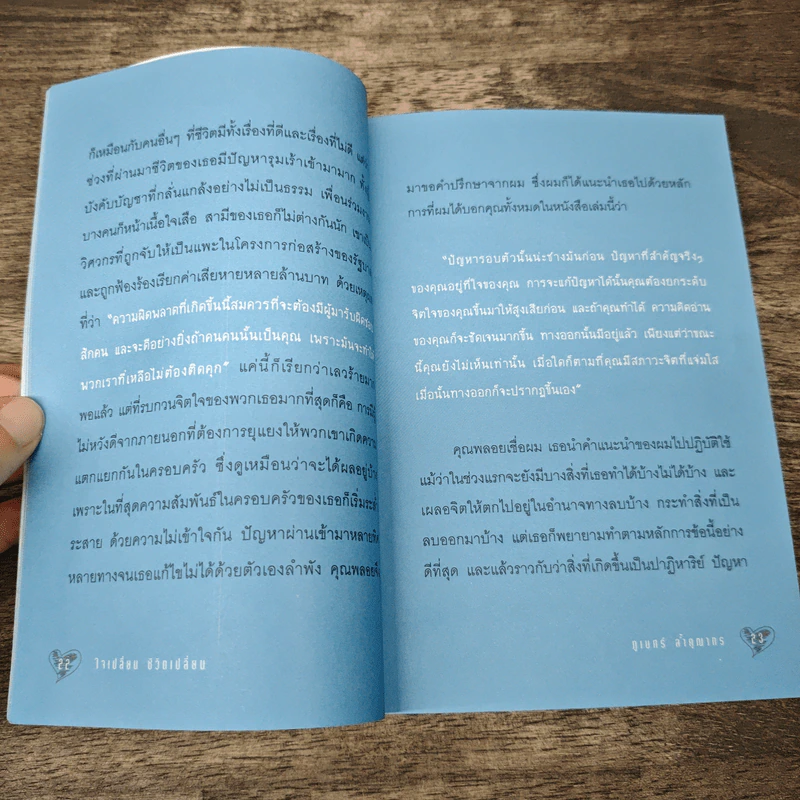 ก็เหมือนกับคนอื่นๆ ที่ชีวิตมีทั้งเรื่องที่ดีและเรื่องที่ไม่ดี
ช่วงที่ผ่านมาชีวิตของเธอมีปัญหารุมเร้าเข้ามามาก
บังคับบัญชาที่กลั่นแกล้งอย่างไม่เป็นธรรม เพื่อนร่วมงาน
บางคนก็หน้าเนื้อใจเสือ สามีของเธอก็ไม่ต่างกันนัก
วิศวกรที่ถูกจับให้เป็นแพะในโครงการก่อสร้างของรัฐบาล
และถูกฟ้องร้องเรียกค่าเสียหายหลายล้านบาท ด้วยเหตุผล
ที่ว่า "ความผิดพลาดที่เกิดขึ้นนี้สมควรที่จะต้องมีผู้มารับผิดชอบ
สักคน และจะดีอย่างยิ่งถ้าคนคนนั้นเป็นคุณ เพราะมันจะทำให้
พวกเราที่เหลือไม่ต้องติดคุก" แค่นี้ก็เรียกว่าเลวร้ายมาก
พอแล้ว แต่ที่รบกวนจิตใจของพวกเธอมากที่สุดก็คือ การมี
ไม่หวังดีจากภายนอกที่ต้องการยุแยงให้พวกเขาเกิดความ
แตกแยกกันในครอบครัว ซึ่งดูเหมือนว่าจะได้ผลอยู่บ้าง
เพราะในที่สุดความสัมพันธ์ในครอบครัวของเธอก็เริ่มระส่ำ
ระสาย ด้วยความไม่เข้าใจกัน ปัญหาผ่านเข้ามาหลายทิศ
หลายทางจนเธอแก้ไขไม่ได้ด้วยตัวเองลำพัง คุณพลอยจึง
22 ใจเปลี่ยน ชีวิตเปลี่ยน
มาขอคำปรึกษาจากผม ซึ่งผมก็ได้แนะนำเธอไปด้วยหลัก
การที่ผมได้บอกคุณทั้งหมดในหนังสือเล่มนี้ว่า
"ปัญหารอบตัวนั้นน่ะช่างมันก่อน ปัญหาที่สำคัญจริงๆ
ของคุณอยู่ที่ใจของคุณ การจะแก้ปัญหาได้นั้นคุณต้องยกระดับ
จิตใจของคุณขึ้นมาให้สูงเสียก่อน และถ้าคุณทำได้ ความคิดอ่าน
ของคุณก็จะชัดเจนมากขึ้น ทางออกนั้นมีอยู่แล้ว เพียงแต่ว่าขณะ
นี้คุณยังไม่เห็นเท่านั้น เมื่อใดก็ตามที่คุณมีสภาวะจิตที่แจ่มใส
เมื่อนั้นทางออกก็จะปรากฏขึ้นเอง"
คุณพลอยเชื่อผม เธอนำคำแนะนำของผมไปปฏิบัติใช้
แม้ว่าในช่วงแรกจะยังมีบางสิ่งที่เธอทำได้บ้างไม่ได้บ้าง และ
เผลอจิตให้ตกไปอยู่ในอำนาจทางลบบ้าง กระทำสิ่งที่เป็น
ลบออกมาบ้าง แต่เธอก็พยายามทำตามหลักการข้อนี้อย่าง
ดีที่สุด และแล้วราวกับว่าสิ่งที่เกิดขึ้นเป็นปาฏิหาริย์ ปัญหา
ภูเนตร ล้ำคุณากร 23